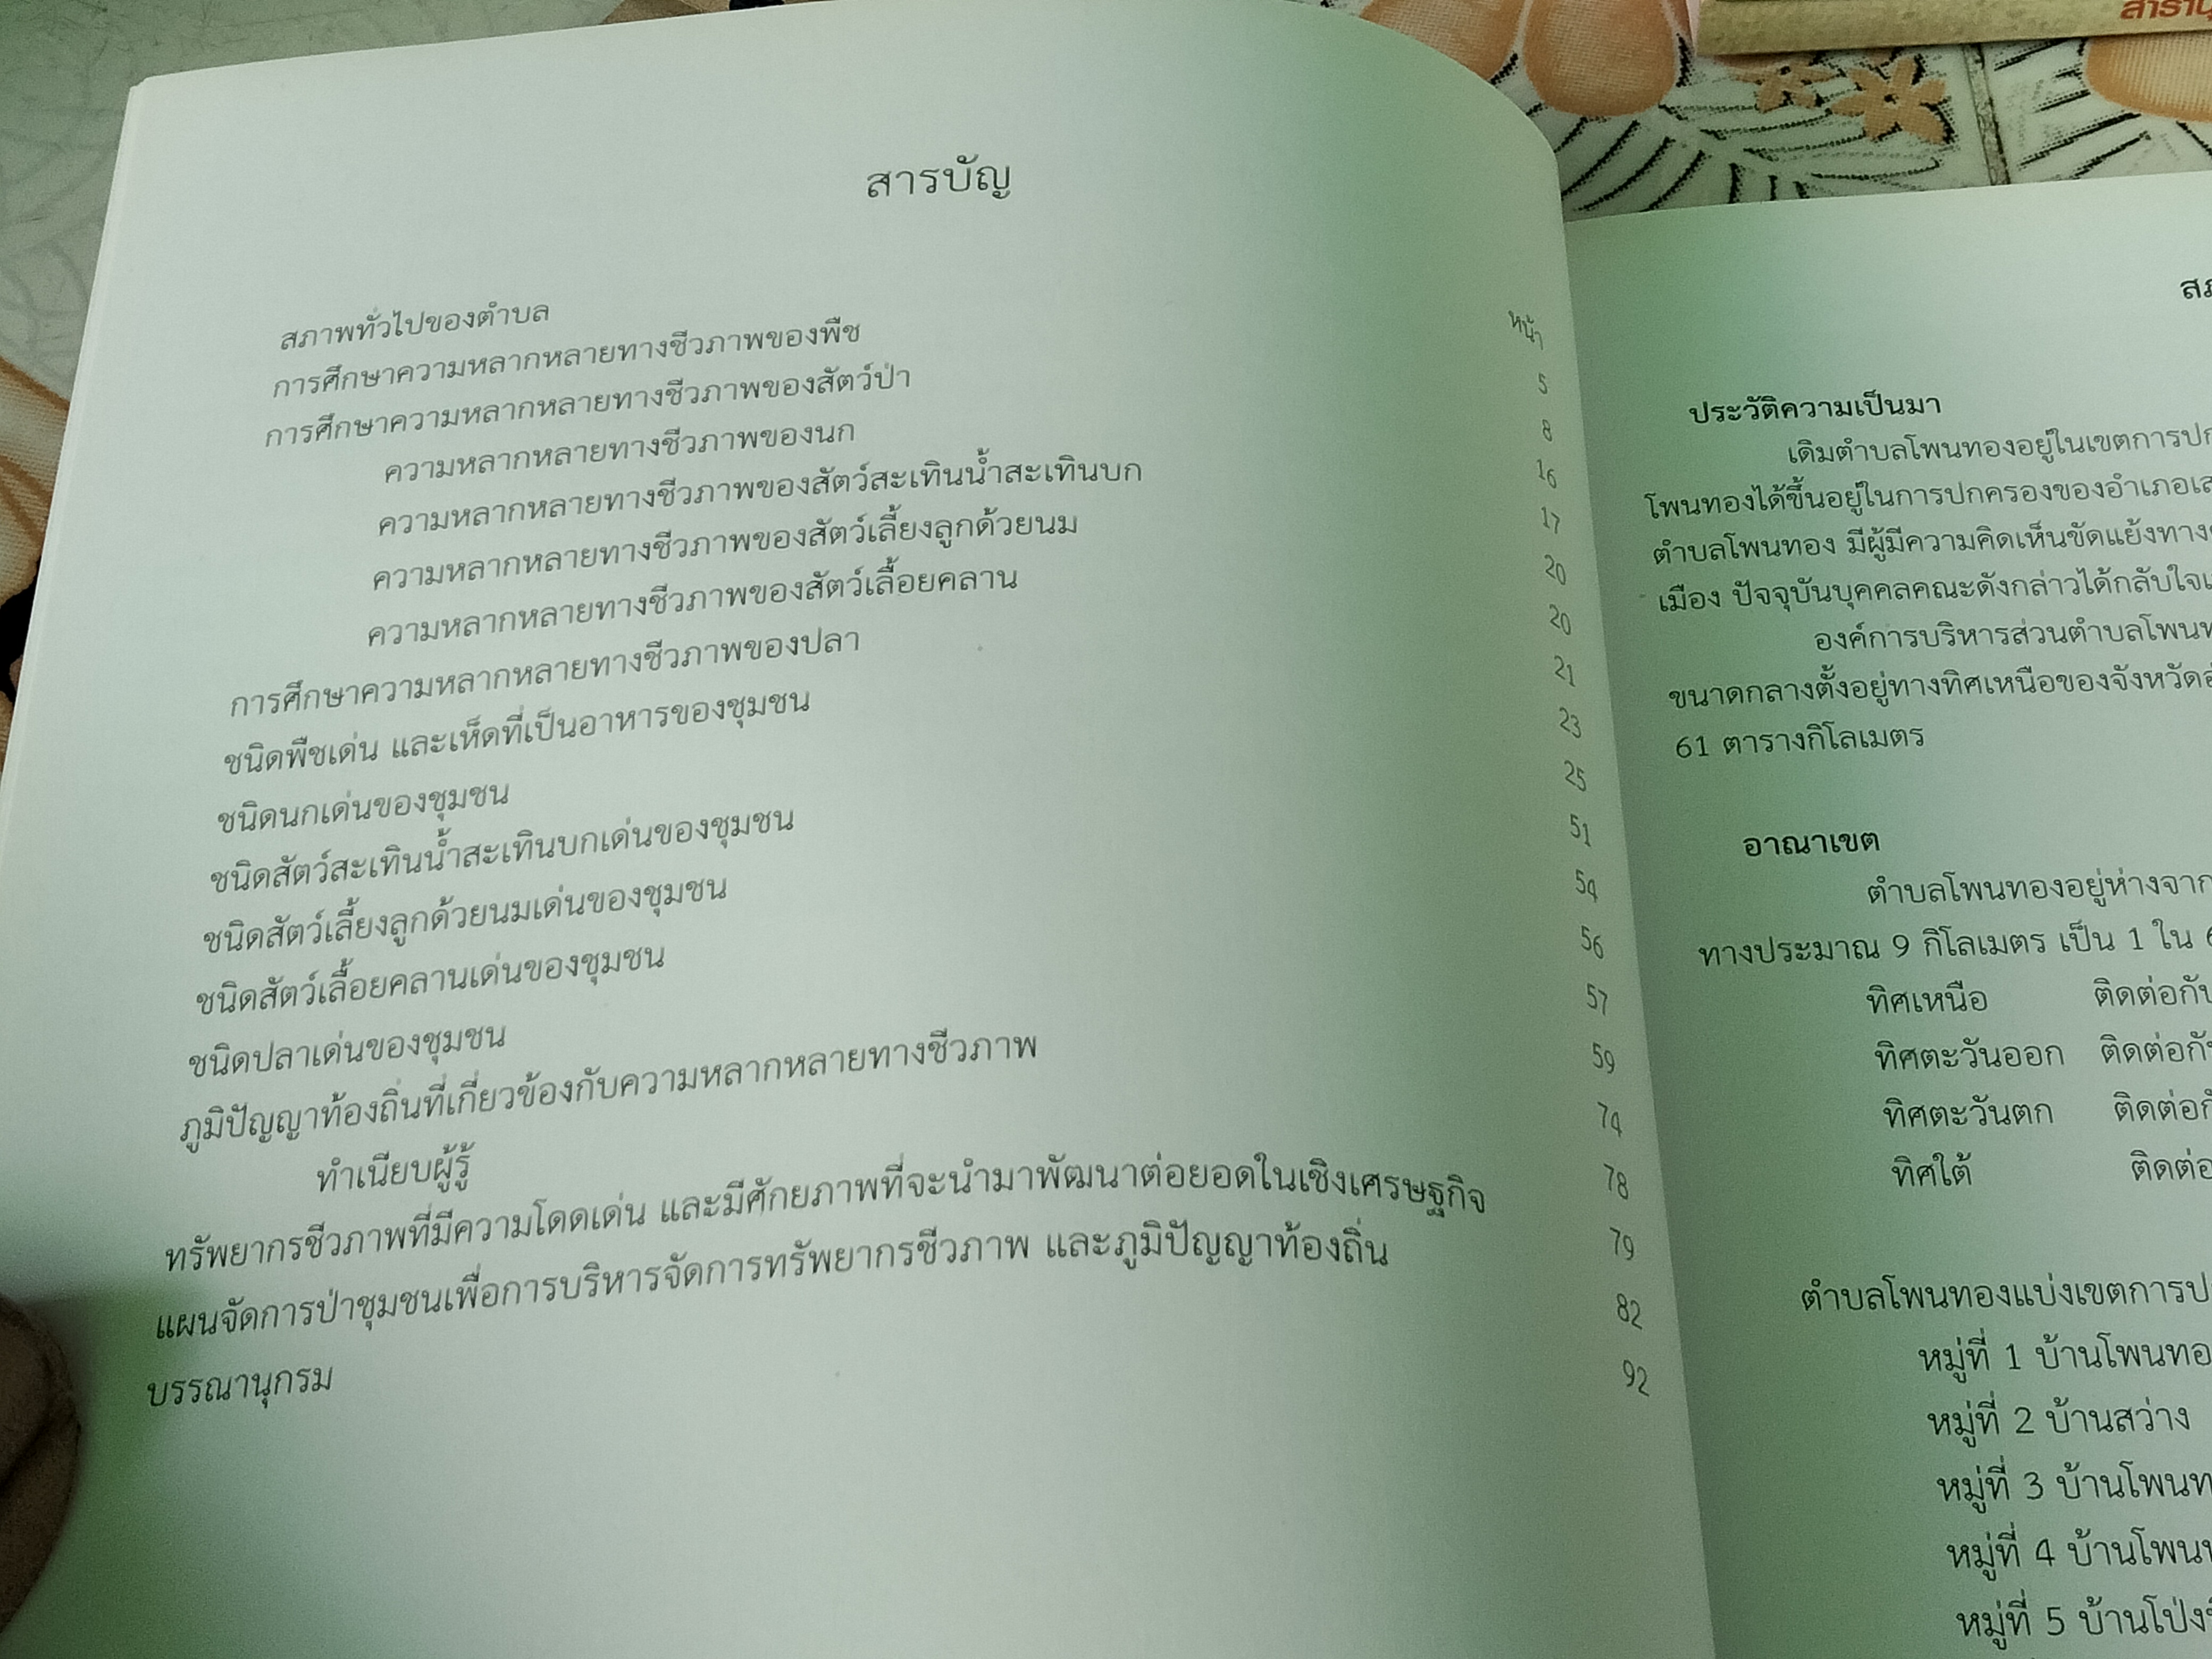 สารบัญ
หน้า
สภาพทั่วไปของตำบล 5
การศึกษาความหลากหลายทางชีวภาพของพืช 8
การศึกษาความหลากหลายทางชีวภาพของสัตว์ป่า 16
ความหลากหลายทางชีวภาพของนก 17
ความหลากหลายทางชีวภาพของสัตว์สะเทินน้ำสะเทินบก 20
ความหลากหลายทางชีวภาพของสัตว์เลี้ยงลูกด้วยนม 20
ความหลากหลายทางชีวภาพของสัตว์เลื้อยคลาน 21
การศึกษาความหลากหลายทางชีวภาพของปลา 23
ชนิดพืชเด่น และเห็ดที่เป็นอาหารของชุมชน 25
ชนิดนกเด่นของชุมชน 51
ชนิดสัตว์สะเทินน้ำสะเทินบกเด่นของชุมชน 54
ชนิดสัตว์เลี้ยงลูกด้วยนมเด่นของชุมชน 56
ชนิดสัตว์เลื้อยคลานเด่นของชุมชน 57
ชนิดปลาเด่นของชุมชน 59
ภูมิปัญญาท้องถิ่นที่เกี่ยวข้องกับความหลากหลายทางชีวภาพ 74
ทำเนียบผู้รู้ 78
ทรัพยากรชีวภาพที่มีความโดดเด่น และมีศักยภาพที่จะนำมาพัฒนาต่อยอดในเชิงเศรษฐกิจ 79
แผนจัดการป่าชุมชนเพื่อการบริหารจัดการทรัพยากรชีวภาพ และภูมิปัญญาท้องถิ่น 82
บรรณานุกรม 92
ประวัติความเป็นมา
เดิมตำบลโพนทองอยู่ในเขตการปก
โพนทองได้ขึ้นอยู่ในการปกครองของอำเภอเส
ตำบลโพนทอง มีผู้มีความคิดเห็นขัดแย้งทาง
เมือง ปัจจุบันบุคคลคณะดังกล่าวได้กลับใจ
องค์การบริหารส่วนตำบลโพนท
ขนาดกลางตั้งอยู่ทางทิศเหนือของจังหวัด
61 ตารางกิโลเมตร
อาณาเขต
ตำบลโพนทองอยู่ห่างจาก
ทางประมาณ 9 กิโลเมตร เป็น 1 ใน
ทิศเหนือ ติดต่อกับ
ทิศตะวันออก ติดต่อกับ
ทิศตะวันตก ติดต่อกั
ทิศใต้ ติดต่อ
ตำบลโพนทองแบ่งเขตการป
หมู่ที่ 1 บ้านโพนทอ
หมู่ที่ 2 บ้านสว่าง
หมู่ที่ 3 บ้านโพนท
หมู่ที่ 4 บ้านโพน
หมู่ที่ 5 บ้านโป่ง